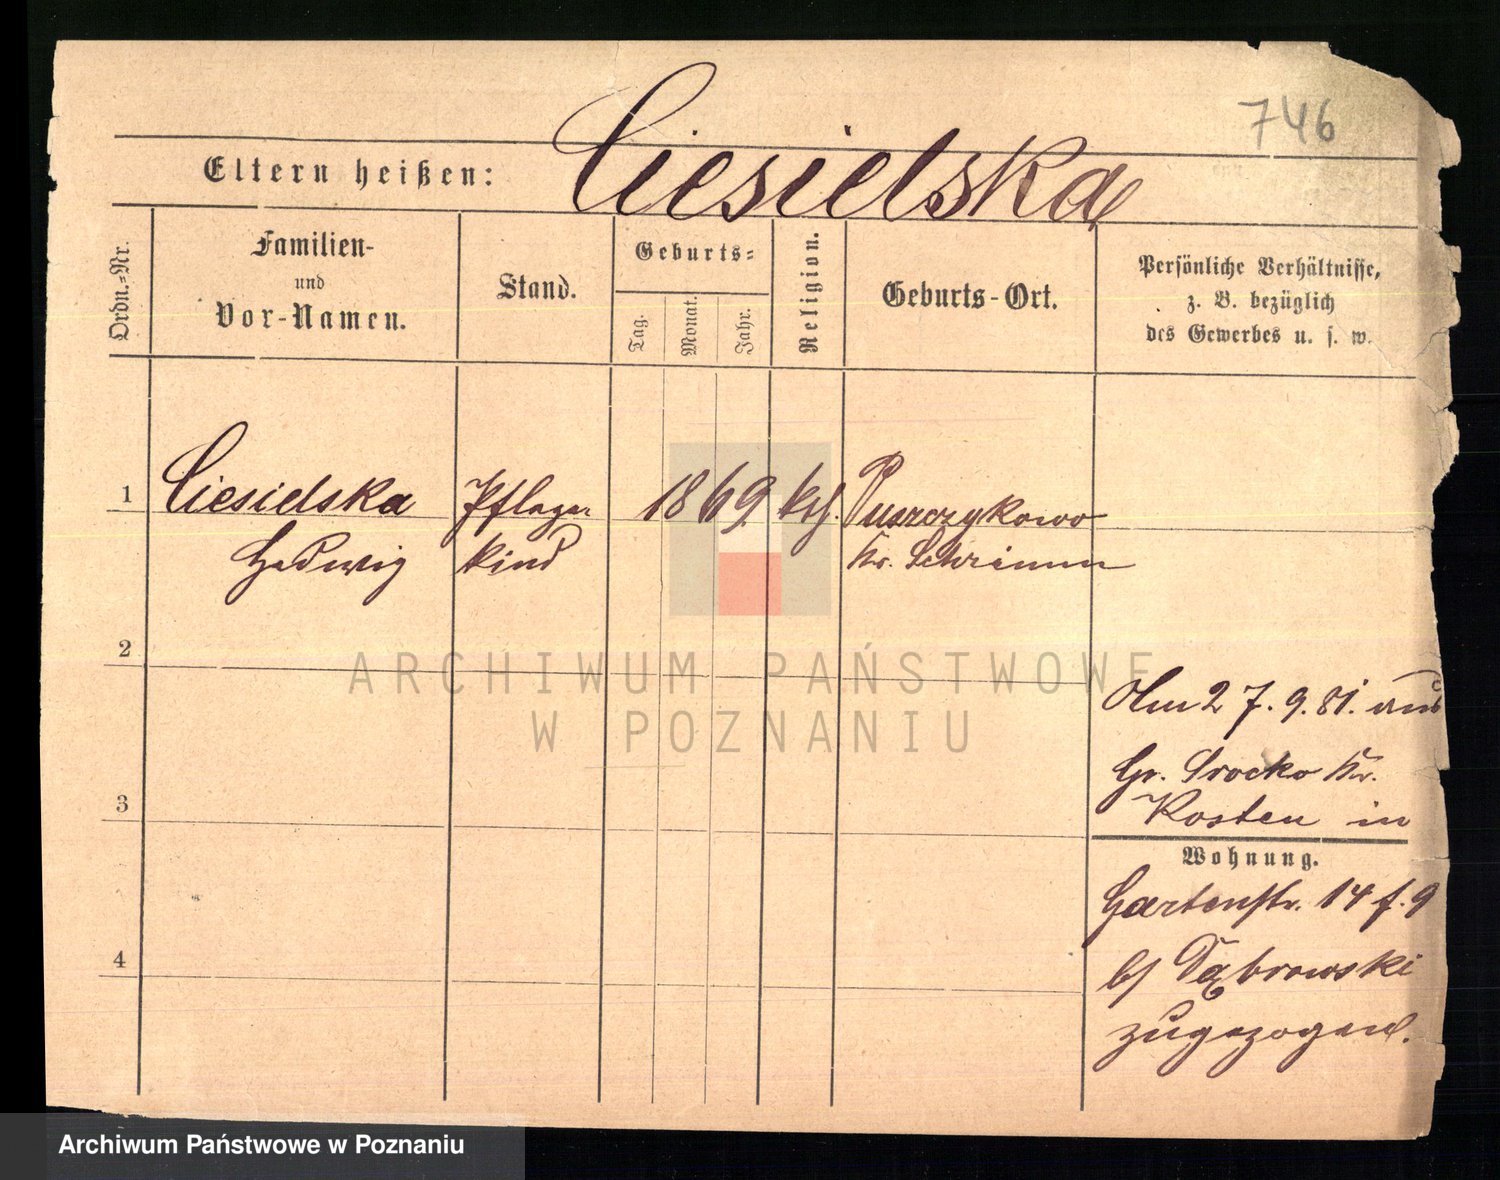 746
Eltern heißen: Ciesielska
Ordn.-Nr.
Familien-
und
Vor-Namen.
Stand.
Geburts-
Tag.
Monat.
Jahr.
Religion.
Geburts-Ort.
Persönliche Verhältnisse,
z. B. bezüglich
des Gewerbes u. s. w.
1 Ciesielska Pflege- 1869. kth. Puszczykowo
Hedwig kind Kr. Schrimm
2
3
4
Am 27.9.81. aus
Gr. Srocko Kr.
Kosten in
Wohnung.
Gartenstr. 14 f. 9
b/ Dąbrowski
zugezogen.
ARCHIWUM PAŃSTWOWE
W POZNANIU
Archiwum Państwowe w Poznaniu